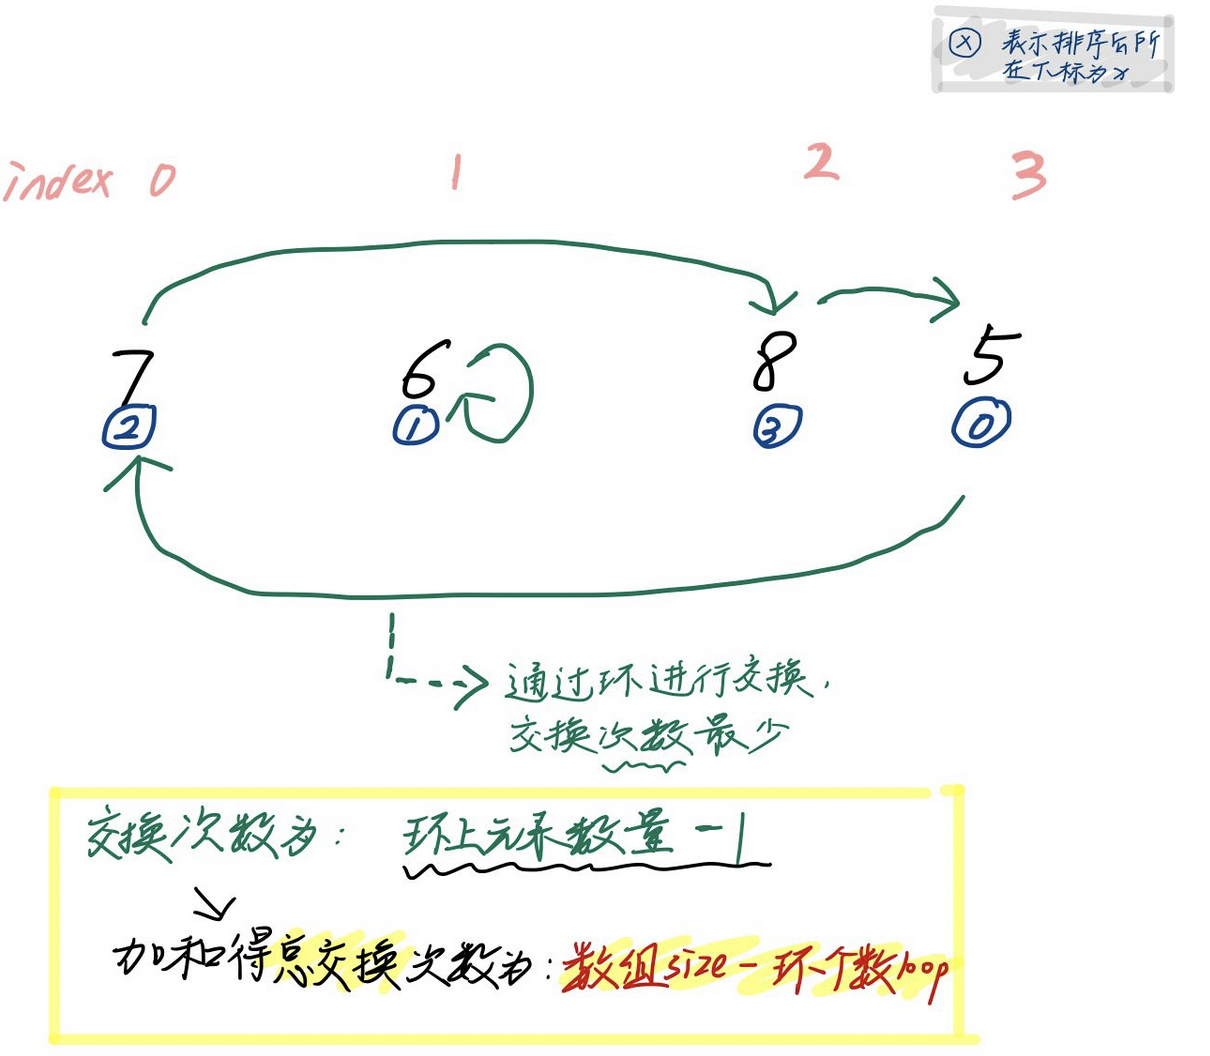 Ⓧ 表示排序后所
在下标为x
index 0 1 2 3
7 6 8 5
② ① ③ ⓪
通过环进行交换,
交换次数最少
交换次数为: 环上元素数量-1
加和得总交换次数为:数组size-环个数loop